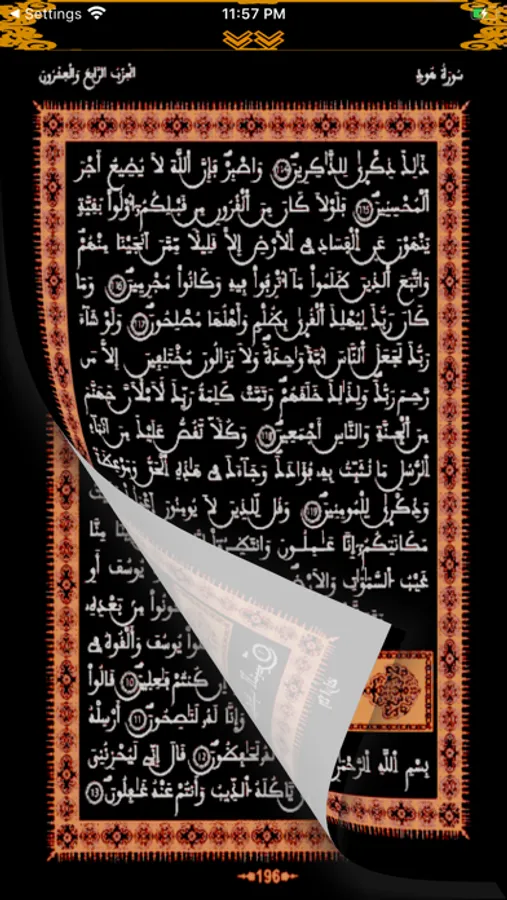 Settings 11:57 PM
سورة هود الحزب الرابع والعشرون
ذَٰلِكَ ذِكْرَىٰ لِلذَّاكِرِينَ 114 وَاصْبِرْ فَإِنَّ اللَّهَ لَا يُضِيعُ أَجْرَ
الْمُحْسِنِينَ 115 فَلَوْلَا كَانَ مِنَ الْقُرُونِ مِن قَبْلِكُمْ أُوْلُواْ بَقِيَّةٍ
يَنْهَوْنَ عَنِ الْفَسَادِ فِي الْأَرْضِ إِلَّا قَلِيلًا مِّمَّنْ أَنجَيْنَا مِنْهُمْ
وَاتَّبَعَ الَّذِينَ ظَلَمُواْ مَا أُتْرِفُواْ فِيهِ وَكَانُواْ مُجْرِمِينَ 116 وَمَا
كَانَ رَبُّكَ لِيُهْلِكَ الْقُرَىٰ بِظُلْمٍ وَأَهْلُهَا مُصْلِحُونَ 117 وَلَوْ شَاءَ
رَبُّكَ لَجَعَلَ النَّاسَ أُمَّةً وَاحِدَةً وَلَا يَزَالُونَ مُخْتَلِفِينَ إِلَّا مَن
رَّحِمَ رَبُّكَ وَلِذَٰلِكَ خَلَقَهُمْ وَتَمَّتْ كَلِمَةُ رَبِّكَ لَأَمْلَأَنَّ جَهَنَّمَ
مِنَ الْجِنَّةِ وَالنَّاسِ أَجْمَعِينَ 118 وَكُلًّا نَّقُصُّ عَلَيْكَ مِنْ أَنبَاءِ
الرُّسُلِ مَا نُثَبِّتُ بِهِ فُؤَادَكَ وَجَاءَكَ فِي هَٰذِهِ الْحَقُّ وَمَوْعِظَةٌ
وَذِكْرَىٰ لِلْمُومِنِينَ 119 وَقُل لِّلَّذِينَ لَا يُومِنُونَ
مَكَانَتِكُمْ إِنَّا عَامِلُونَ
غَيْبُ السَّمَاوَاتِ وَالْأَرْضِ يُوسُفَ أَوِ
مِن بَعْدِهِ
يُوسُفَ وَأَلْقُوهُ فِي
كُنتُمْ فَاعِلِينَ 10 قَالُواْ
وَإِنَّا لَهُ لَنَاصِحُونَ 11 أَرْسِلْهُ
لَحَافِظُونَ 12 قَالَ إِنِّي لَيُحْزِنُنِي
بِسْمِ اللَّهِ
يَّاكُلَهُ الذِّيبُ وَأَنتُمْ عَنْهُ غَافِلُونَ 13
196